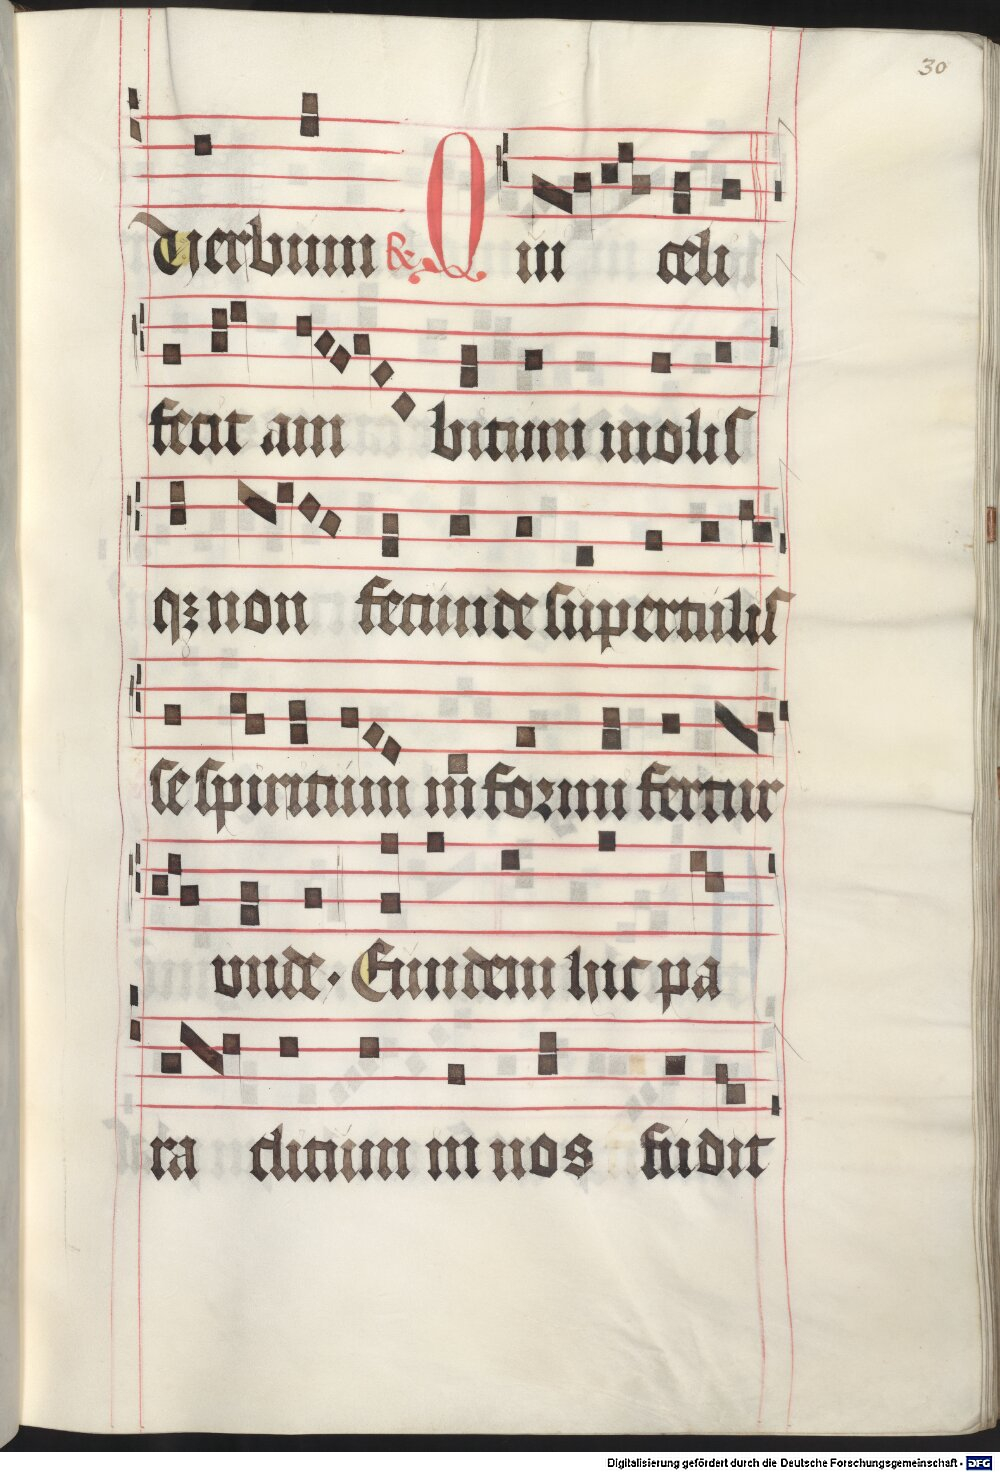 30
Verbum & Qui celi
fecit am bitum molis
qꝫ non fecunde supertulis
se spiritum in formi fertur
unde. Eundem hic pa
ra clitum in nos fudit
Digitalisierung gefördert durch die Deutsche Forschungsgemeinschaft - DFG